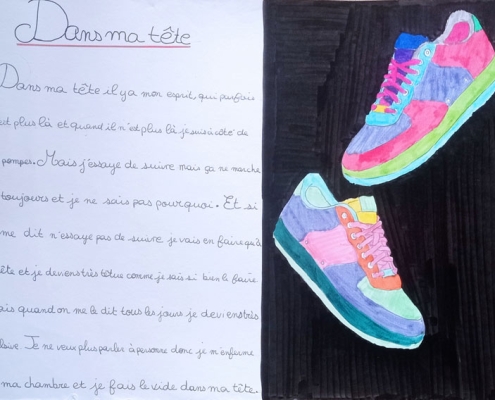 Dans ma tête
Dans ma tête il y a mon esprit, qui parfois
est plus là et quand il n'est plus là je suis à côté de
pompes. Mais j'essaye de suivre mais ça ne marche
toujours et je ne sais pas pourquoi. Et si
me dit n'essaye pas de suivre je vais en faire qu'à
ête et je deviens très têtue comme je sais si bien le faire
ais quand on me le dit tous les jours je deviens très
Je ne veux plus parler à personne donc je m'enferme
ma chambre et je fais le vide dans ma tête.